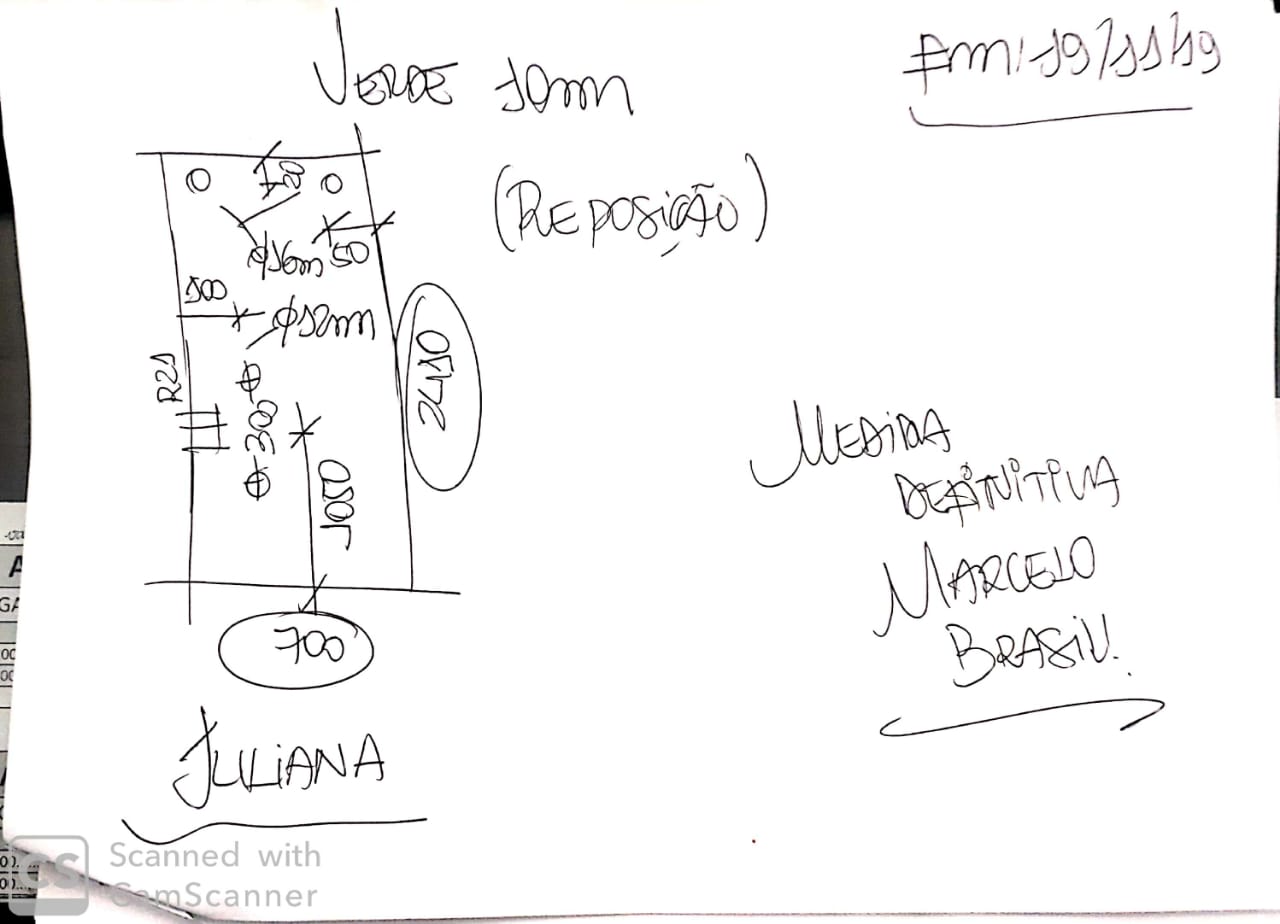 VERDE 10mm
Em, 19/11/19
(REPOSIÇÃO)
120
ø16m
50
100
ø12mm
R21
300
2410
1050
700
MEDIDA
DEFINITIVA
MARCELO
BRASIL.
JULIANA
CS
Scanned with
CamScanner